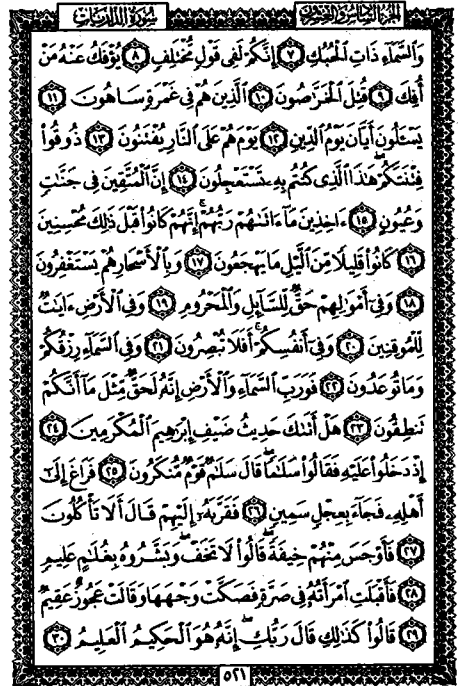 الجزء السادس والعشرون
سورة الذاريات
وَالسَّمَاءِ ذَاتِ الْحُبُكِ ٧ إِنَّكُمْ لَفِي قَوْلٍ مُّخْتَلِفٍ ٨ يُؤْفَكُ عَنْهُ مَنْ
أُفِكَ ٩ قُتِلَ الْخَرَّاصُونَ ١٠ الَّذِينَ هُمْ فِي غَمْرَةٍ سَاهُونَ ١١
يَسْـَٔلُونَ أَيَّانَ يَوْمُ الدِّينِ ١٢ يَوْمَ هُمْ عَلَى النَّارِ يُفْتَنُونَ ١٣ ذُوقُوا
فِتْنَتَكُمْ هَٰذَا الَّذِي كُنتُم بِهِ تَسْتَعْجِلُونَ ١٤ إِنَّ الْمُتَّقِينَ فِي جَنَّٰتٍ
وَعُيُونٍ ١٥ ءَاخِذِينَ مَا ءَاتَىٰهُمْ رَبُّهُمْ ۚ إِنَّهُمْ كَانُوا قَبْلَ ذَٰلِكَ مُحْسِنِينَ
١٦ كَانُوا قَلِيلًا مِّنَ الَّيْلِ مَا يَهْجَعُونَ ١٧ وَبِالْأَسْحَارِ هُمْ يَسْتَغْفِرُونَ
١٨ وَفِي أَمْوَٰلِهِمْ حَقٌّ لِّلسَّائِلِ وَالْمَحْرُومِ ١٩ وَفِي الْأَرْضِ ءَايَٰتٌ
لِّلْمُوقِنِينَ ٢٠ وَفِي أَنفُسِكُمْ ۚ أَفَلَا تُبْصِرُونَ ٢١ وَفِي السَّمَاءِ رِزْقُكُمْ
وَمَا تُوعَدُونَ ٢٢ فَوَرَبِّ السَّمَاءِ وَالْأَرْضِ إِنَّهُ لَحَقٌّ مِّثْلَ مَا أَنَّكُمْ
تَنطِقُونَ ٢٣ هَلْ أَتَىٰكَ حَدِيثُ ضَيْفِ إِبْرَٰهِيمَ الْمُكْرَمِينَ ٢٤
إِذْ دَخَلُوا عَلَيْهِ فَقَالُوا سَلَٰمًا ۖ قَالَ سَلَٰمٌ قَوْمٌ مُّنكَرُونَ ٢٥ فَرَاغَ إِلَىٰ
أَهْلِهِ فَجَاءَ بِعِجْلٍ سَمِينٍ ٢٦ فَقَرَّبَهُ إِلَيْهِمْ قَالَ أَلَا تَأْكُلُونَ
٢٧ فَأَوْجَسَ مِنْهُمْ خِيفَةً ۖ قَالُوا لَا تَخَفْ ۖ وَبَشَّرُوهُ بِغُلَٰمٍ عَلِيمٍ
٢٨ فَأَقْبَلَتِ امْرَأَتُهُ فِي صَرَّةٍ فَصَكَّتْ وَجْهَهَا وَقَالَتْ عَجُوزٌ عَقِيمٌ
٢٩ قَالُوا كَذَٰلِكِ قَالَ رَبُّكِ ۖ إِنَّهُ هُوَ الْحَكِيمُ الْعَلِيمُ ٣٠
٥٢١